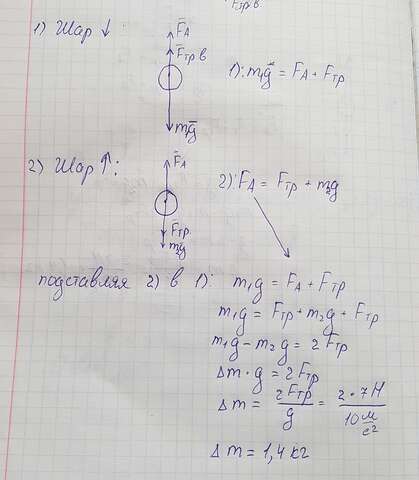 Fтр в
1) Шар ↓
F̄A
F̄тр в
m₁ḡ
1): m₁ḡ = FA + Fтр
2) Шар ↑:
F̄A
Fтр
m₂g
2): FA = Fтр + m₂g
подставляя 2) в 1): m₁g = FA + Fтр
m₁g = Fтр + m₂g + Fтр
m₁g - m₂g = 2Fтр
Δm · g = 2Fтр
Δm = 2Fтр / g = 2 · 7 Н / 10 м/с²
Δm = 1,4 кг